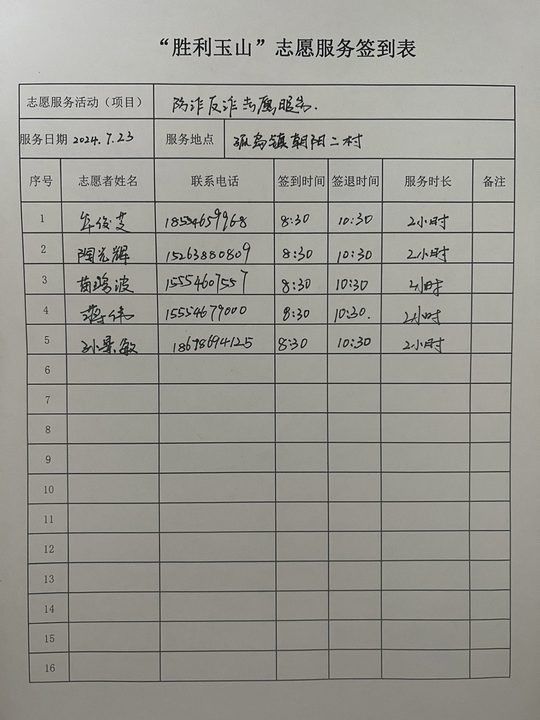 “胜利玉山”志愿服务签到表
志愿服务活动（项目） 防诈反诈志愿服务.
服务日期 2024.7.23 服务地点 孤岛镇朝阳二村
序号 志愿者姓名 联系电话 签到时间 签退时间 服务时长 备注
1 牟俊芝 18554659968 8:30 10:30 2小时
2 陶光辉 15263880809 8:30 10:30 2小时
3 苗鸿波 15554607557 8:30 10:30 2小时
4 蒋伟 15554679000 8:30 10:30. 2小时
5 孙景敏 18678694125 8:30 10:30 2小时
6
7
8
9
10
11
12
13
14
15
16